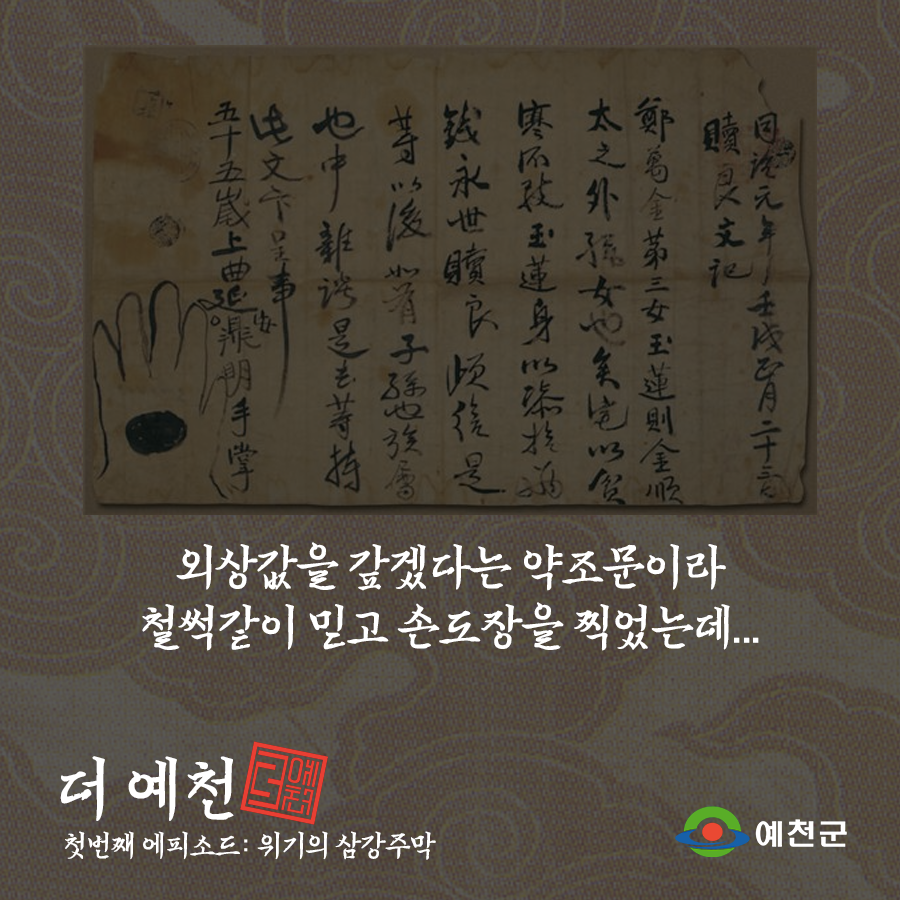 同治元年壬戌正月二十三日
贖良文記
鄭萬金第三女玉蓮則金順
太之外孫女也矣宅以貧
寒不 玉蓮身以
錢永世贖良 是
等以後如有子孫也族屬
也中雜談是去等持
此文卞呈事
五十五歲上典 手掌
외상값을 갚겠다는 약조문이라
철썩같이 믿고 손도장을 찍었는데...
더 예천
첫번째 에피소드: 위기의 삼강주막
예천군